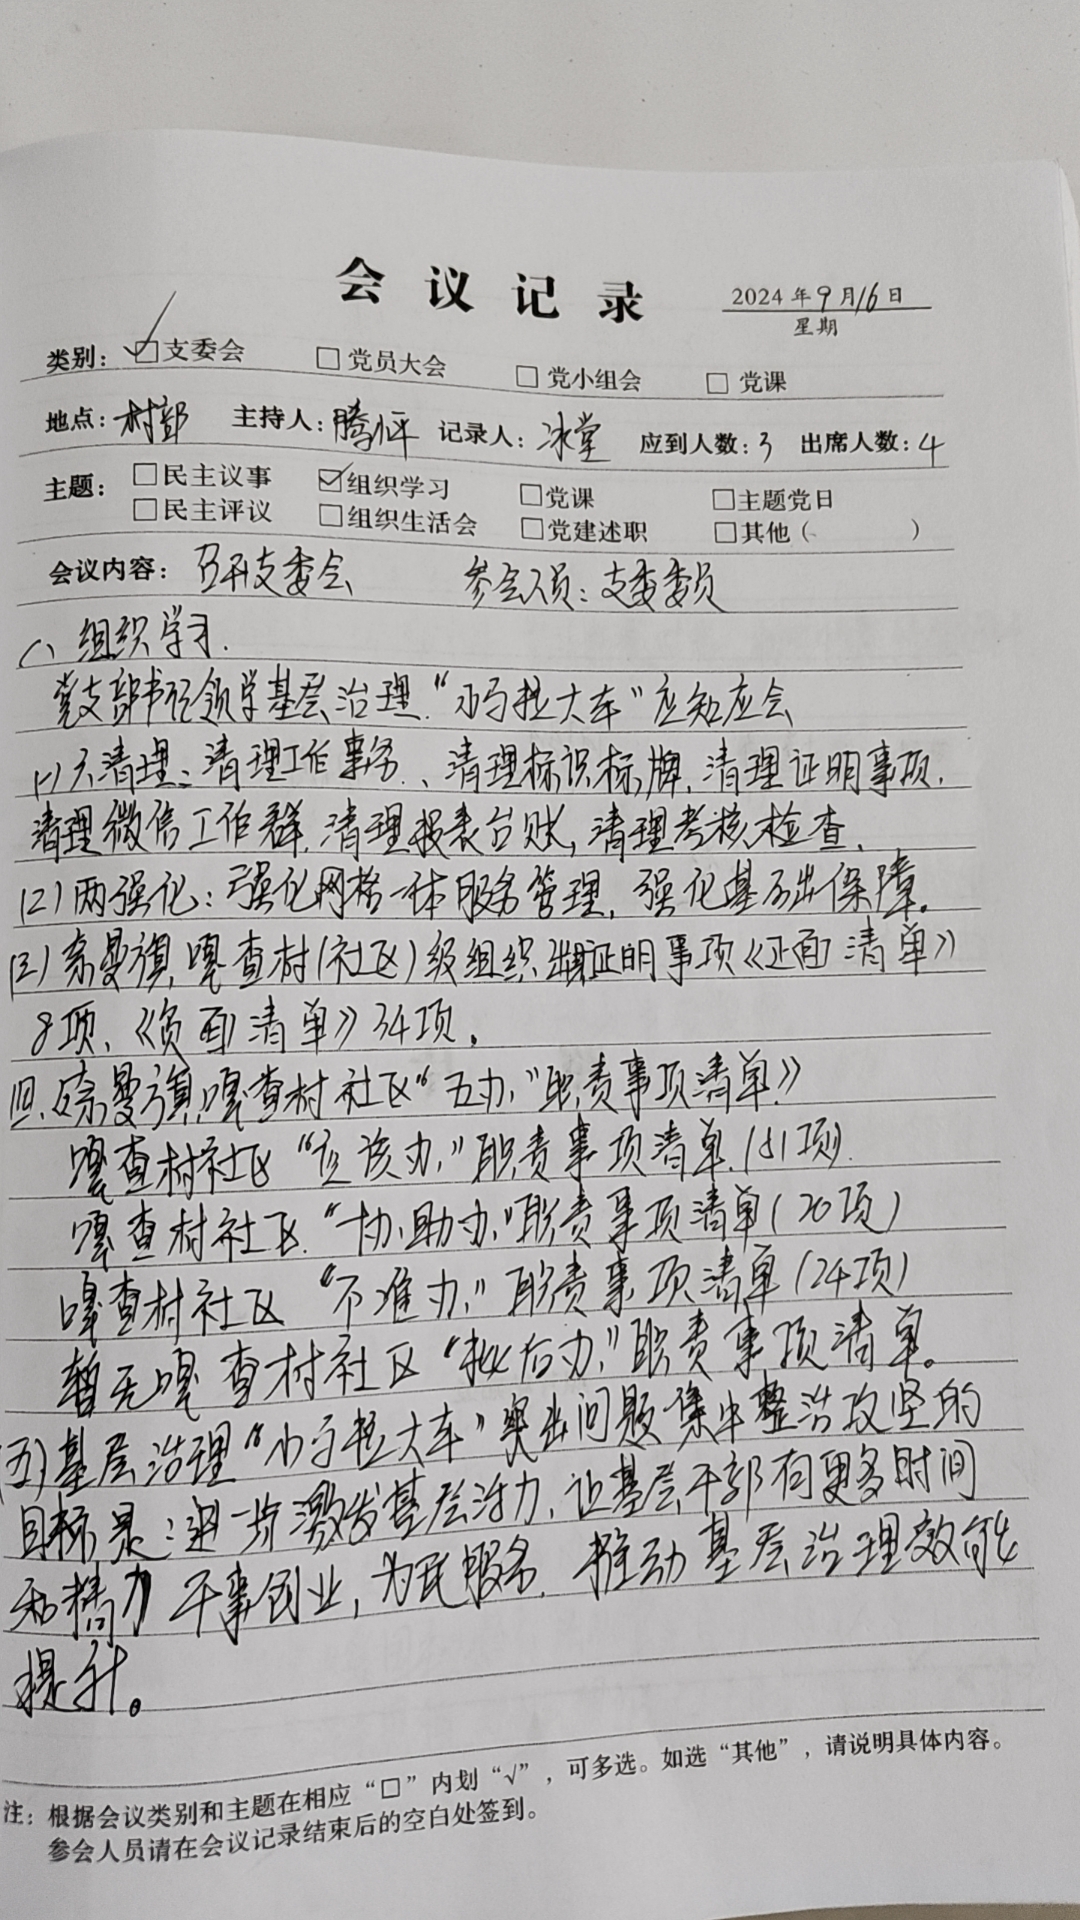 会议记录
2024年9月16日
星期
类别：☑支委会 □党员大会 □党小组会 □党课
地点：村部 主持人：腾 记录人：冰堂 应到人数：3 出席人数：4
主题：□民主议事 ☑组织学习 □党课 □主题党日
□民主评议 □组织生活会 □党建述职 □其他（ ）
会议内容：召开支委会 参会人员：支委委员
一、组织学习.
党支部书记领学基层治理“小马拉大车”应知应会
(一)六清理：清理工作事务、清理标识标牌，清理证明事项，
清理微信工作群，清理报表台账，清理考核检查，
(2)两强化：强化网格一体服务管理，强化基础保障。
(三)奈曼旗，嘎查村(社区)级组织出具证明事项《正面清单》
8项、《负面清单》34项。
四、奈曼旗，嘎查村社区“五办”职责事项清单》
嘎查村社区“应该办”职责事项清单.(81项).
嘎查村社区.“协助办”职责事项清单(20项)
嘎查村社区“不准办”职责事项清单(24项)
暂无嘎查村社区“ 办”职责事项清单。
(五)基层治理“小马拉大车”突出问题集中整治攻坚的
目标是：进一步激发基层活力，让基层干部有更多时间
和精力干事创业，为民服务，推动基层治理效能
提升。
注：根据会议类别和主题在相应“□”内划“√”，可多选。如选“其他”，请说明具体内容。
参会人员请在会议记录结束后的空白处签到。